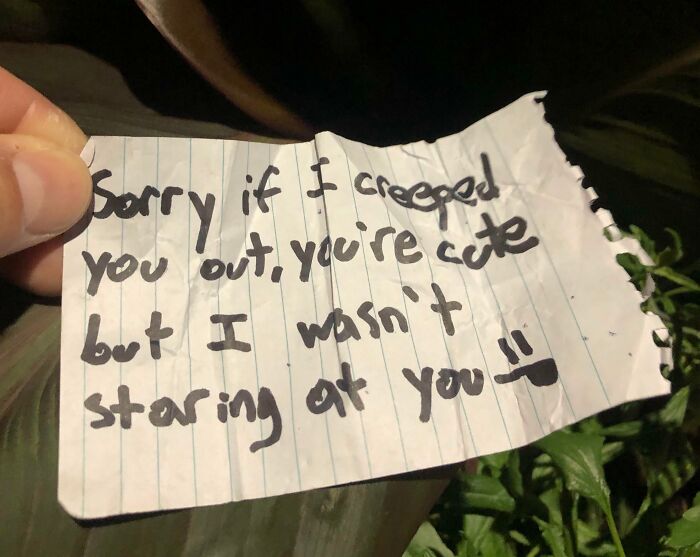 Sorry if I creeped
you out, you're cute
but I wasn't
staring at you